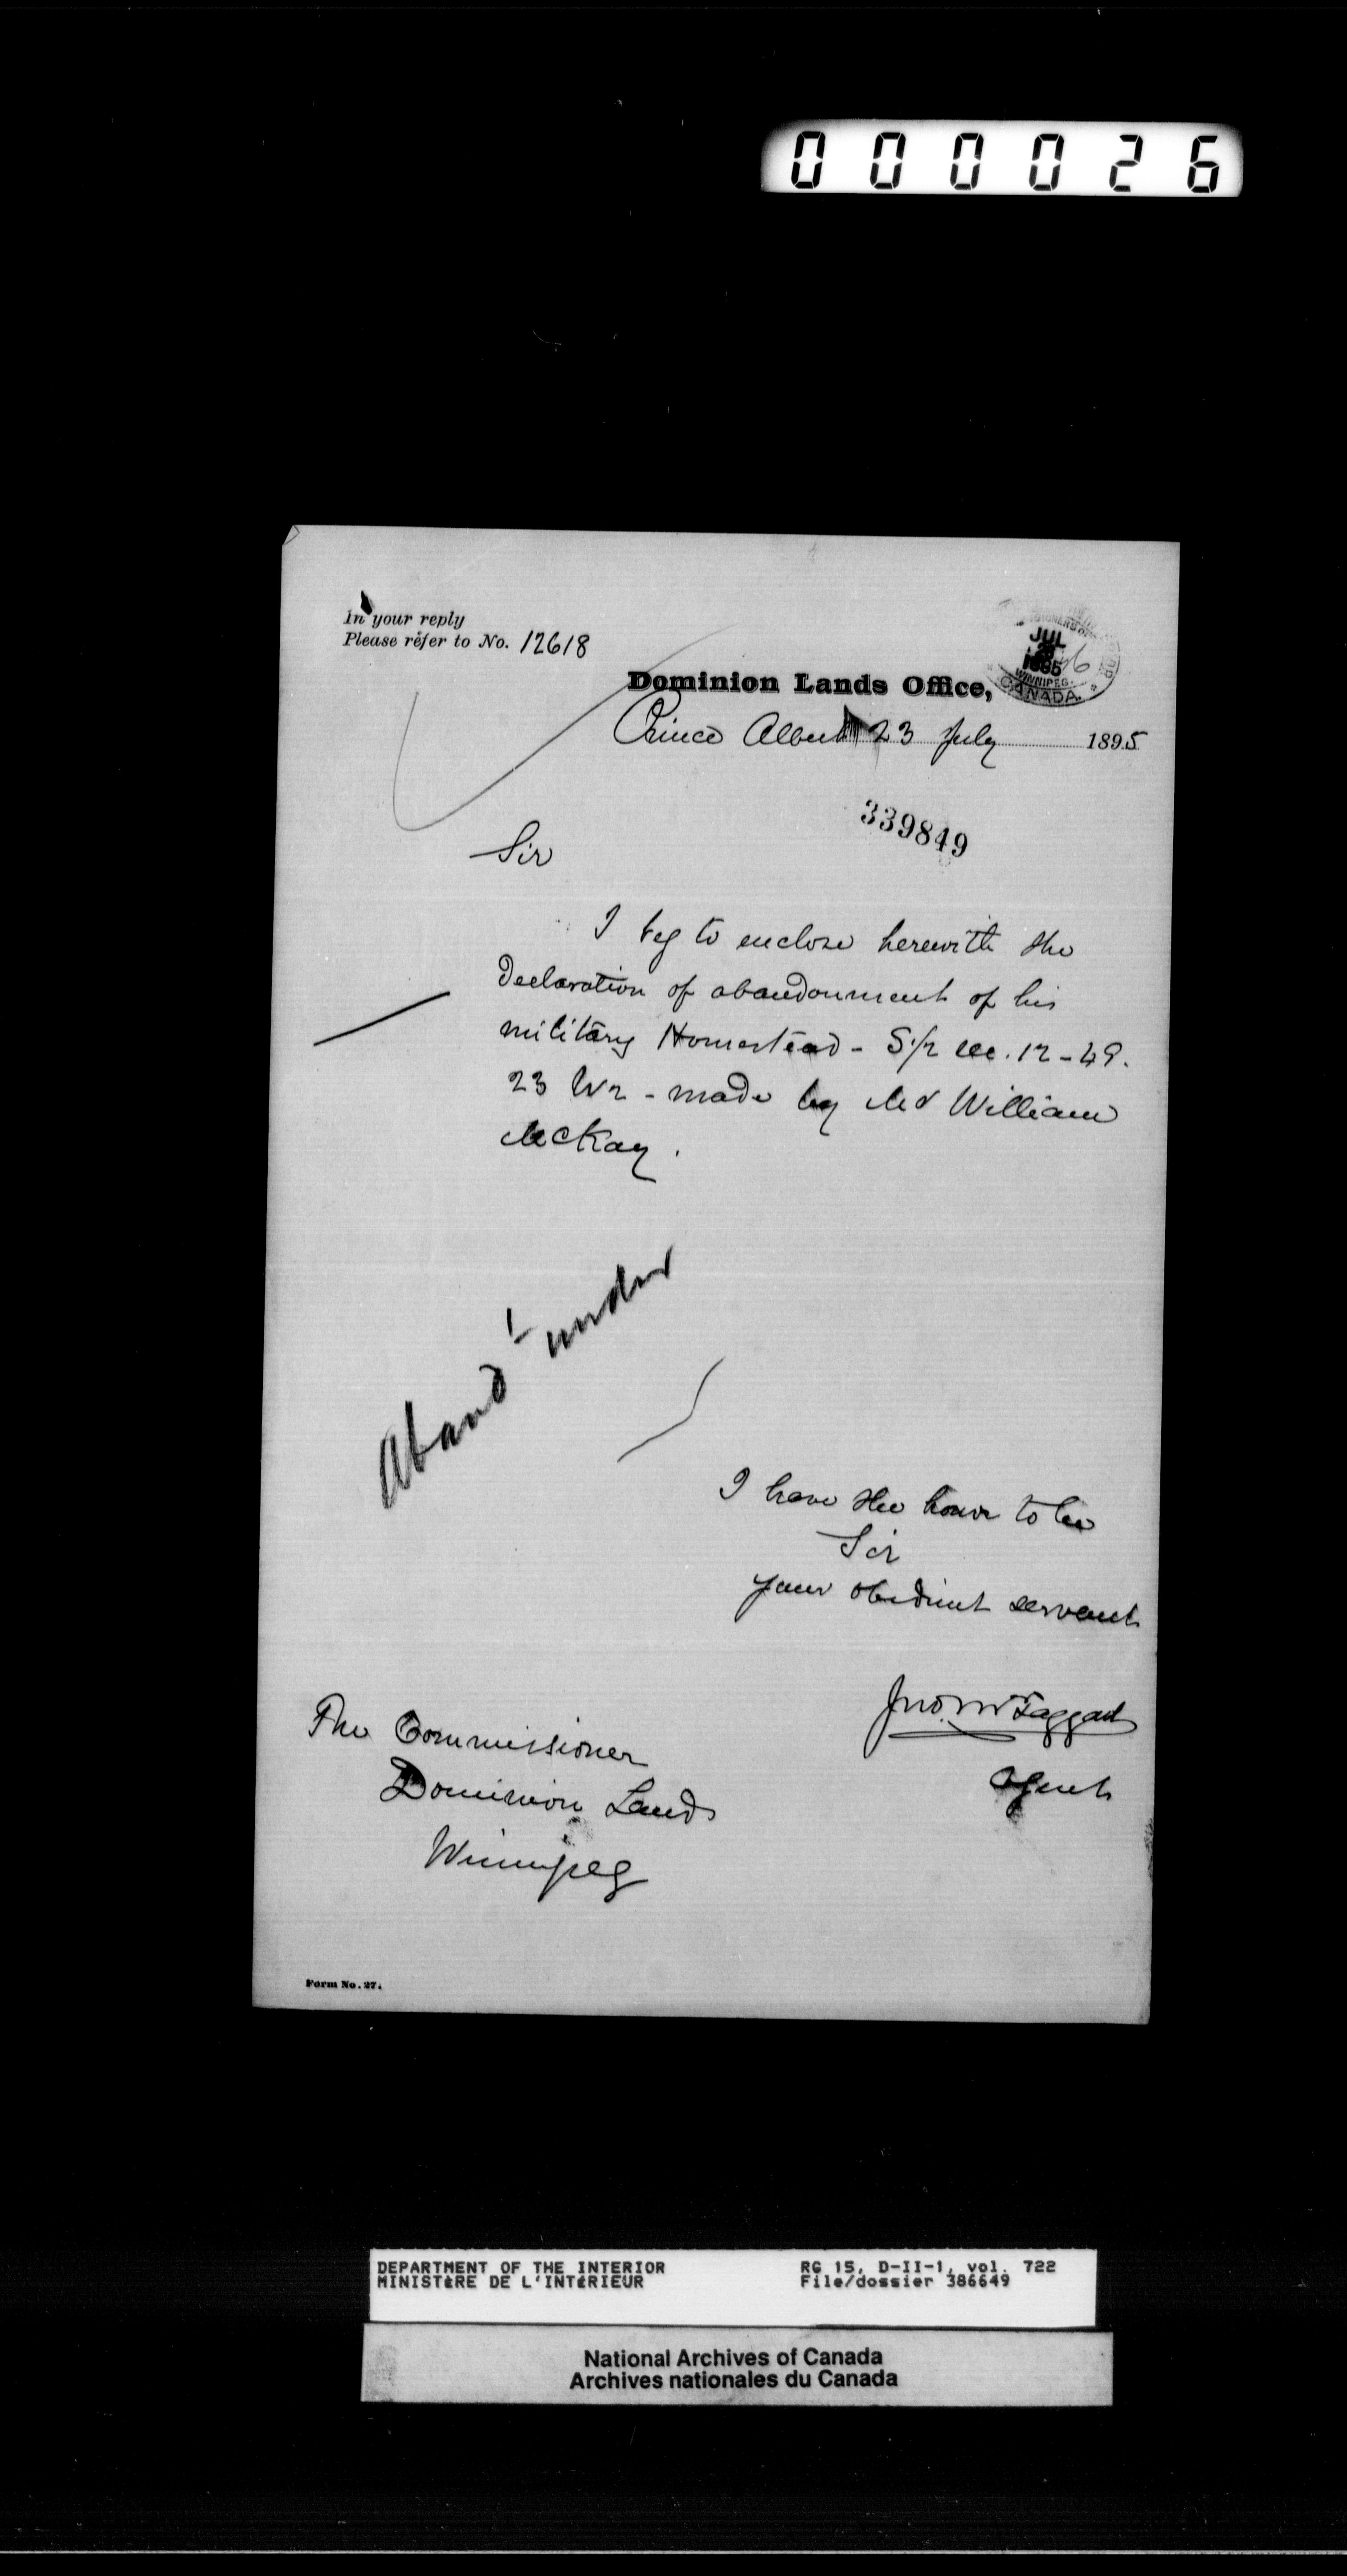 000026
In your reply
Please refer to No. 12618
JUL
1895
WINNIPEG.
CANADA.
Dominion Lands Office,
Prince Albert 23 July 1895
339849
Sir
I beg to enclose herewith the
Declaration of abandonment of his
military Homestead - S½ sec. 12-49.
23 W2 - made by Mr William
McKay.
Aband't under
I have the honor to be
Sir
your obedient servant
Jno. McTaggart
Agent
The Commissioner
Dominion Lands
Winnipeg
Form No. 27.
DEPARTMENT OF THE INTERIOR
MINISTÈRE DE L'INTÉRIEUR
RG 15, D-II-1, vol. 722
File/dossier 386649
National Archives of Canada
Archives nationales du Canada